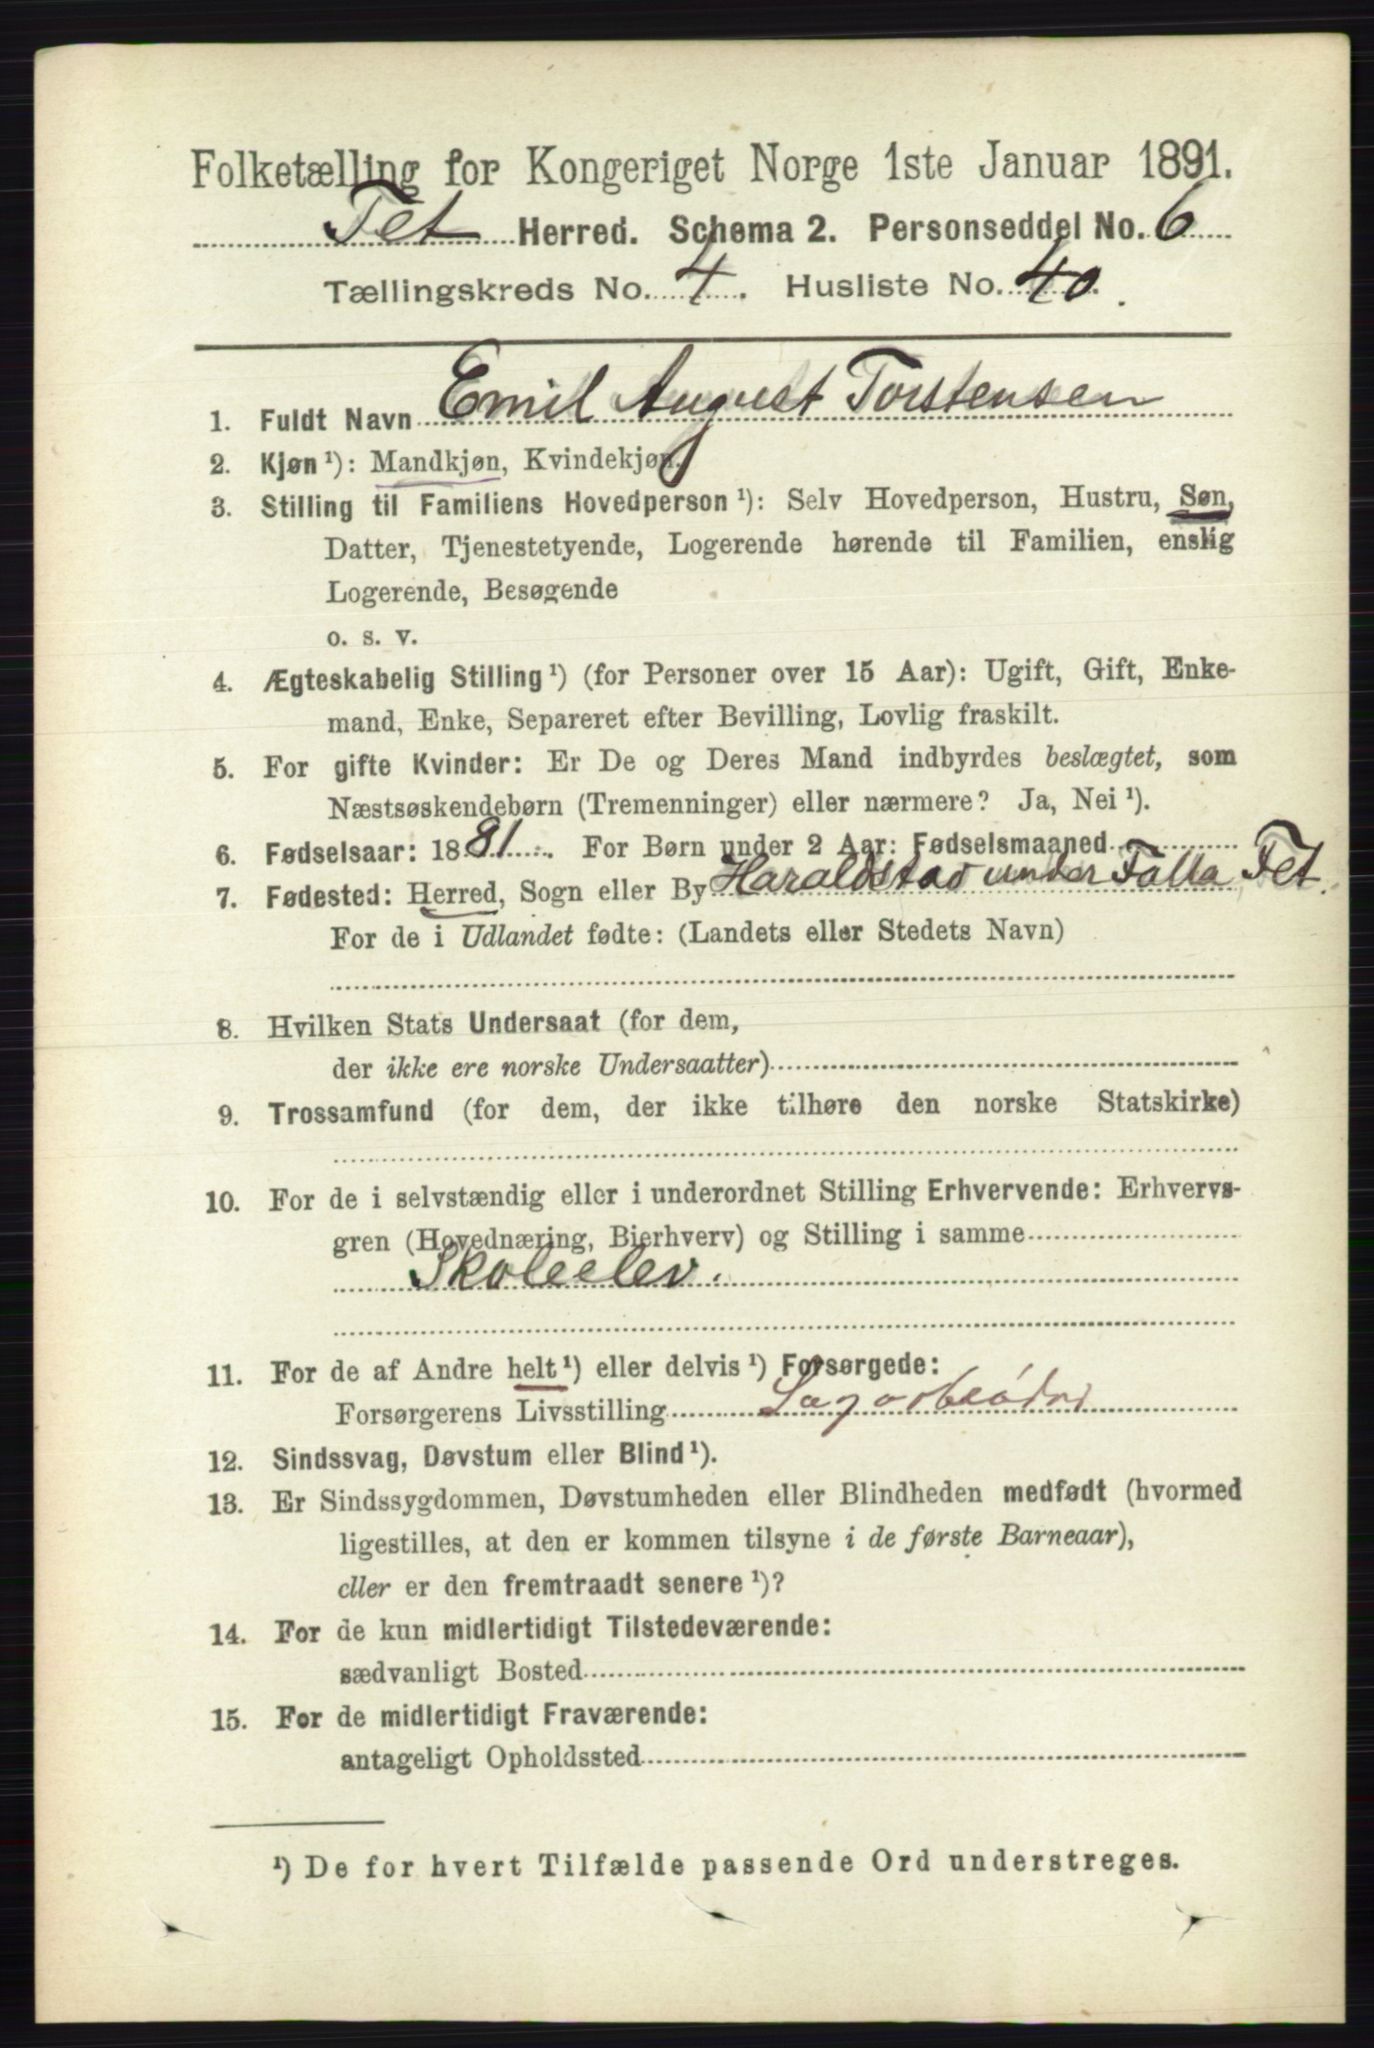 Folketælling for Kongeriget Norge 1ste Januar 1891.
Fet Herred. Schema 2. Personseddel No. 6
Tællingskreds No. 4. Husliste No. 40.
1. Fuldt Navn Emil August Torstensen
2. Kjøn ¹): Mandkjøn, Kvindekjøn.
3. Stilling til Familiens Hovedperson ¹): Selv Hovedperson, Hustru, Søn,
Datter, Tjenestetyende, Logerende hørende til Familien, enslig
Logerende, Besøgende
o. s. v.
4. Ægteskabelig Stilling ¹) (for Personer over 15 Aar): Ugift, Gift, Enke-
mand, Enke, Separeret efter Bevilling, Lovlig fraskilt.
5. For gifte Kvinder: Er De og Deres Mand indbyrdes beslægtet, som
Næstsøskendebørn (Tremenninger) eller nærmere? Ja, Nei ¹).
6. Fødselsaar: 1881. For Børn under 2 Aar: Fødselsmaaned
7. Fødested: Herred, Sogn eller By Haraldstad under Falla Fet.
For de i Udlandet fødte: (Landets eller Stedets Navn)
8. Hvilken Stats Undersaat (for dem,
der ikke ere norske Undersaatter)
9. Trossamfund (for dem, der ikke tilhøre den norske Statskirke)
10. For de i selvstændig eller i underordnet Stilling Erhvervende: Erhvervs-
gren (Hovednæring, Bierhverv) og Stilling i samme
Skoleelev.
11. For de af Andre helt ¹) eller delvis ¹) Forsørgede:
Forsørgerens Livsstilling
12. Sindssvag, Døvstum eller Blind ¹).
13. Er Sindssygdommen, Døvstumheden eller Blindheden medfødt (hvormed
ligestilles, at den er kommen tilsyne i de første Barneaar),
eller er den fremtraadt senere ¹)?
14. For de kun midlertidigt Tilstedeværende:
sædvanligt Bosted
15. For de midlertidigt Fraværende:
antageligt Opholdssted
¹) De for hvert Tilfælde passende Ord understreges.